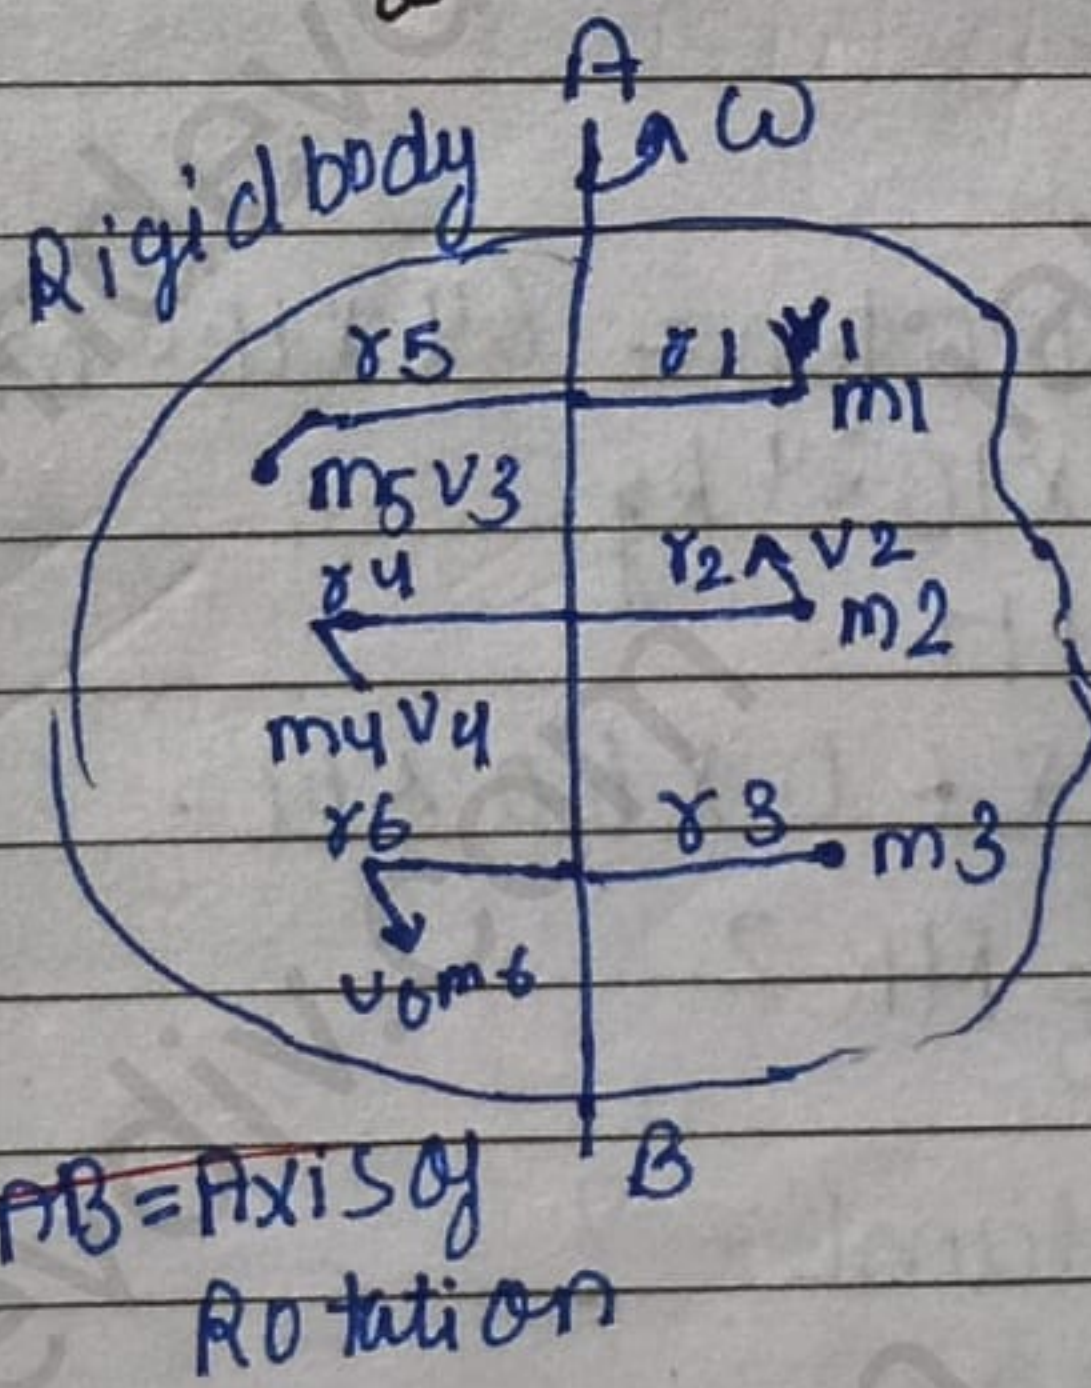 A
ω
Rigid body
r5
r1 v1
m1
m5 v3
r2 v2
r4
m2
m4 v4
r6
r3
m3
v6 m6
B
AB = Axis of
Rotation